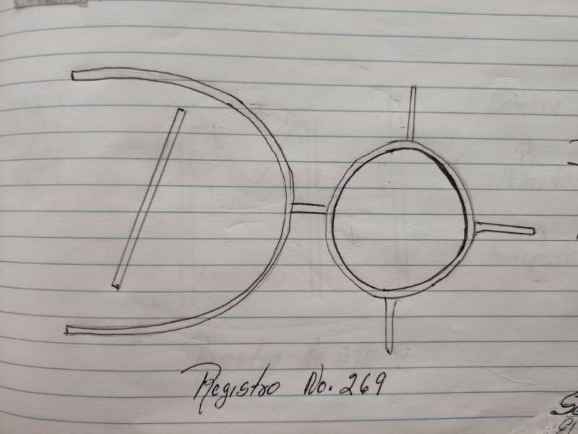 Registro No. 269